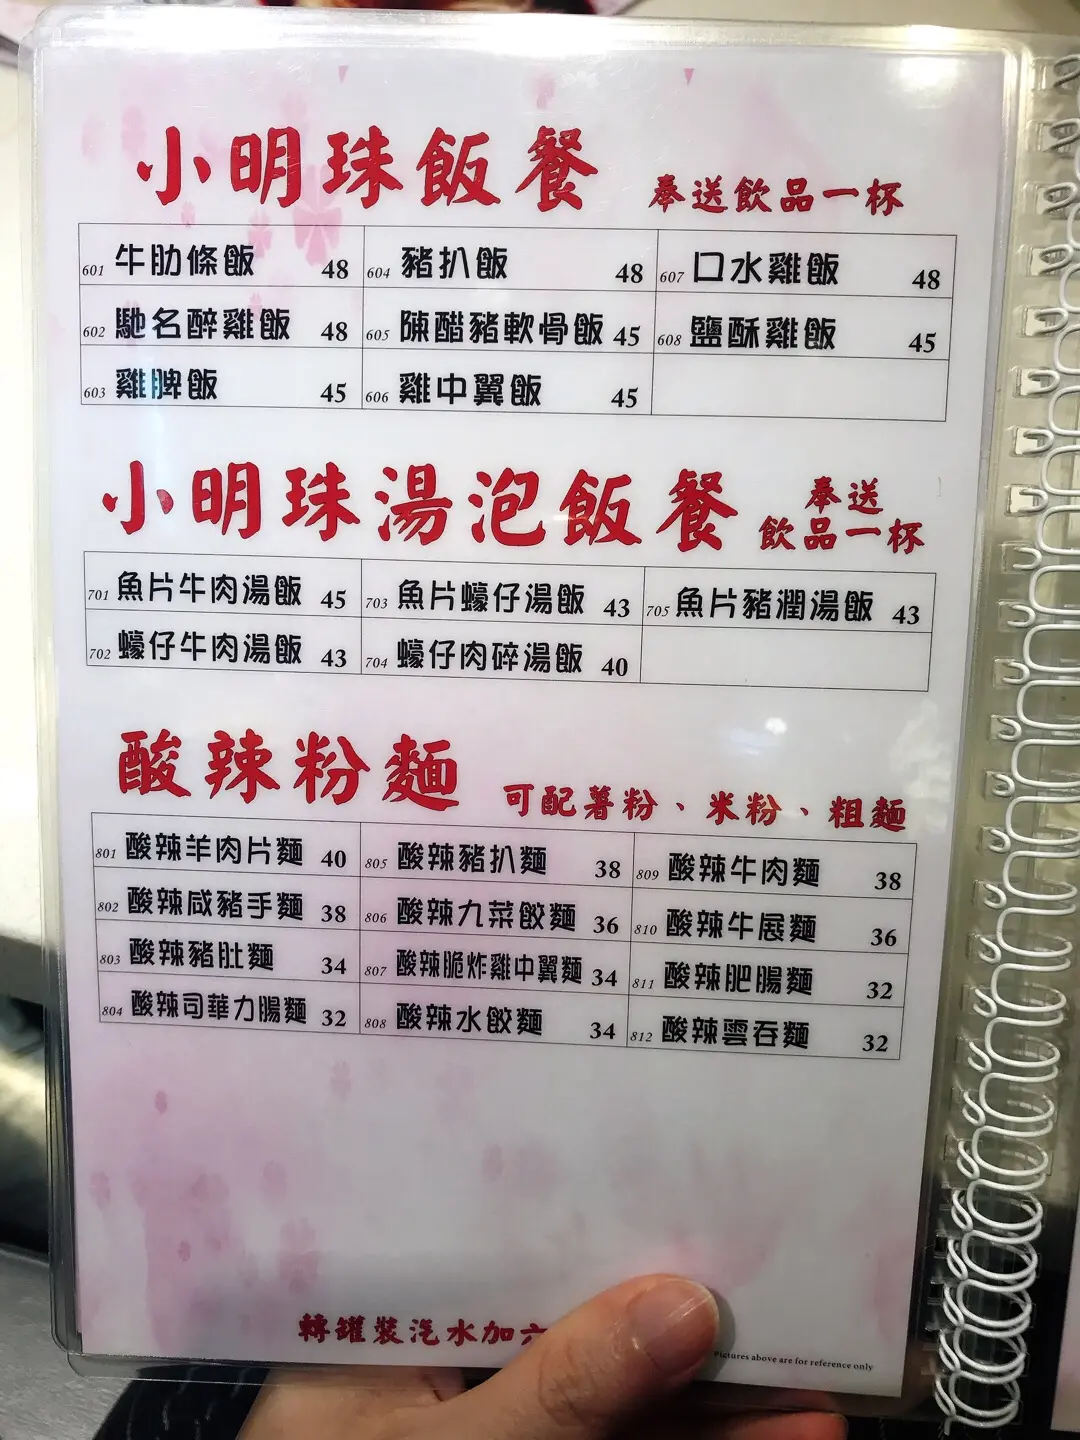 小明珠飯餐 奉送飲品一杯
601 牛肋條飯 48 604 豬扒飯 48 607 口水雞飯 48
602 馳名醉雞飯 48 605 陳醋豬軟骨飯 45 608 鹽酥雞飯 45
603 雞脾飯 45 606 雞中翼飯 45
小明珠湯泡飯餐 奉送
飲品一杯
701 魚片牛肉湯飯 45 703 魚片蠔仔湯飯 43 705 魚片豬潤湯飯 43
702 蠔仔牛肉湯飯 43 704 蠔仔肉碎湯飯 40
酸辣粉麵 可配薯粉、米粉、粗麵
801 酸辣羊肉片麵 40 805 酸辣豬扒麵 38 809 酸辣牛肉麵 38
802 酸辣咸豬手麵 38 806 酸辣九菜餃麵 36 810 酸辣牛展麵 36
803 酸辣豬肚麵 34 807 酸辣脆炸雞中翼麵 34 811 酸辣肥腸麵 32
804 酸辣司華力腸麵 32 808 酸辣水餃麵 34 812 酸辣雲吞麵 32
轉罐裝汽水加六
Pictures above are for reference only